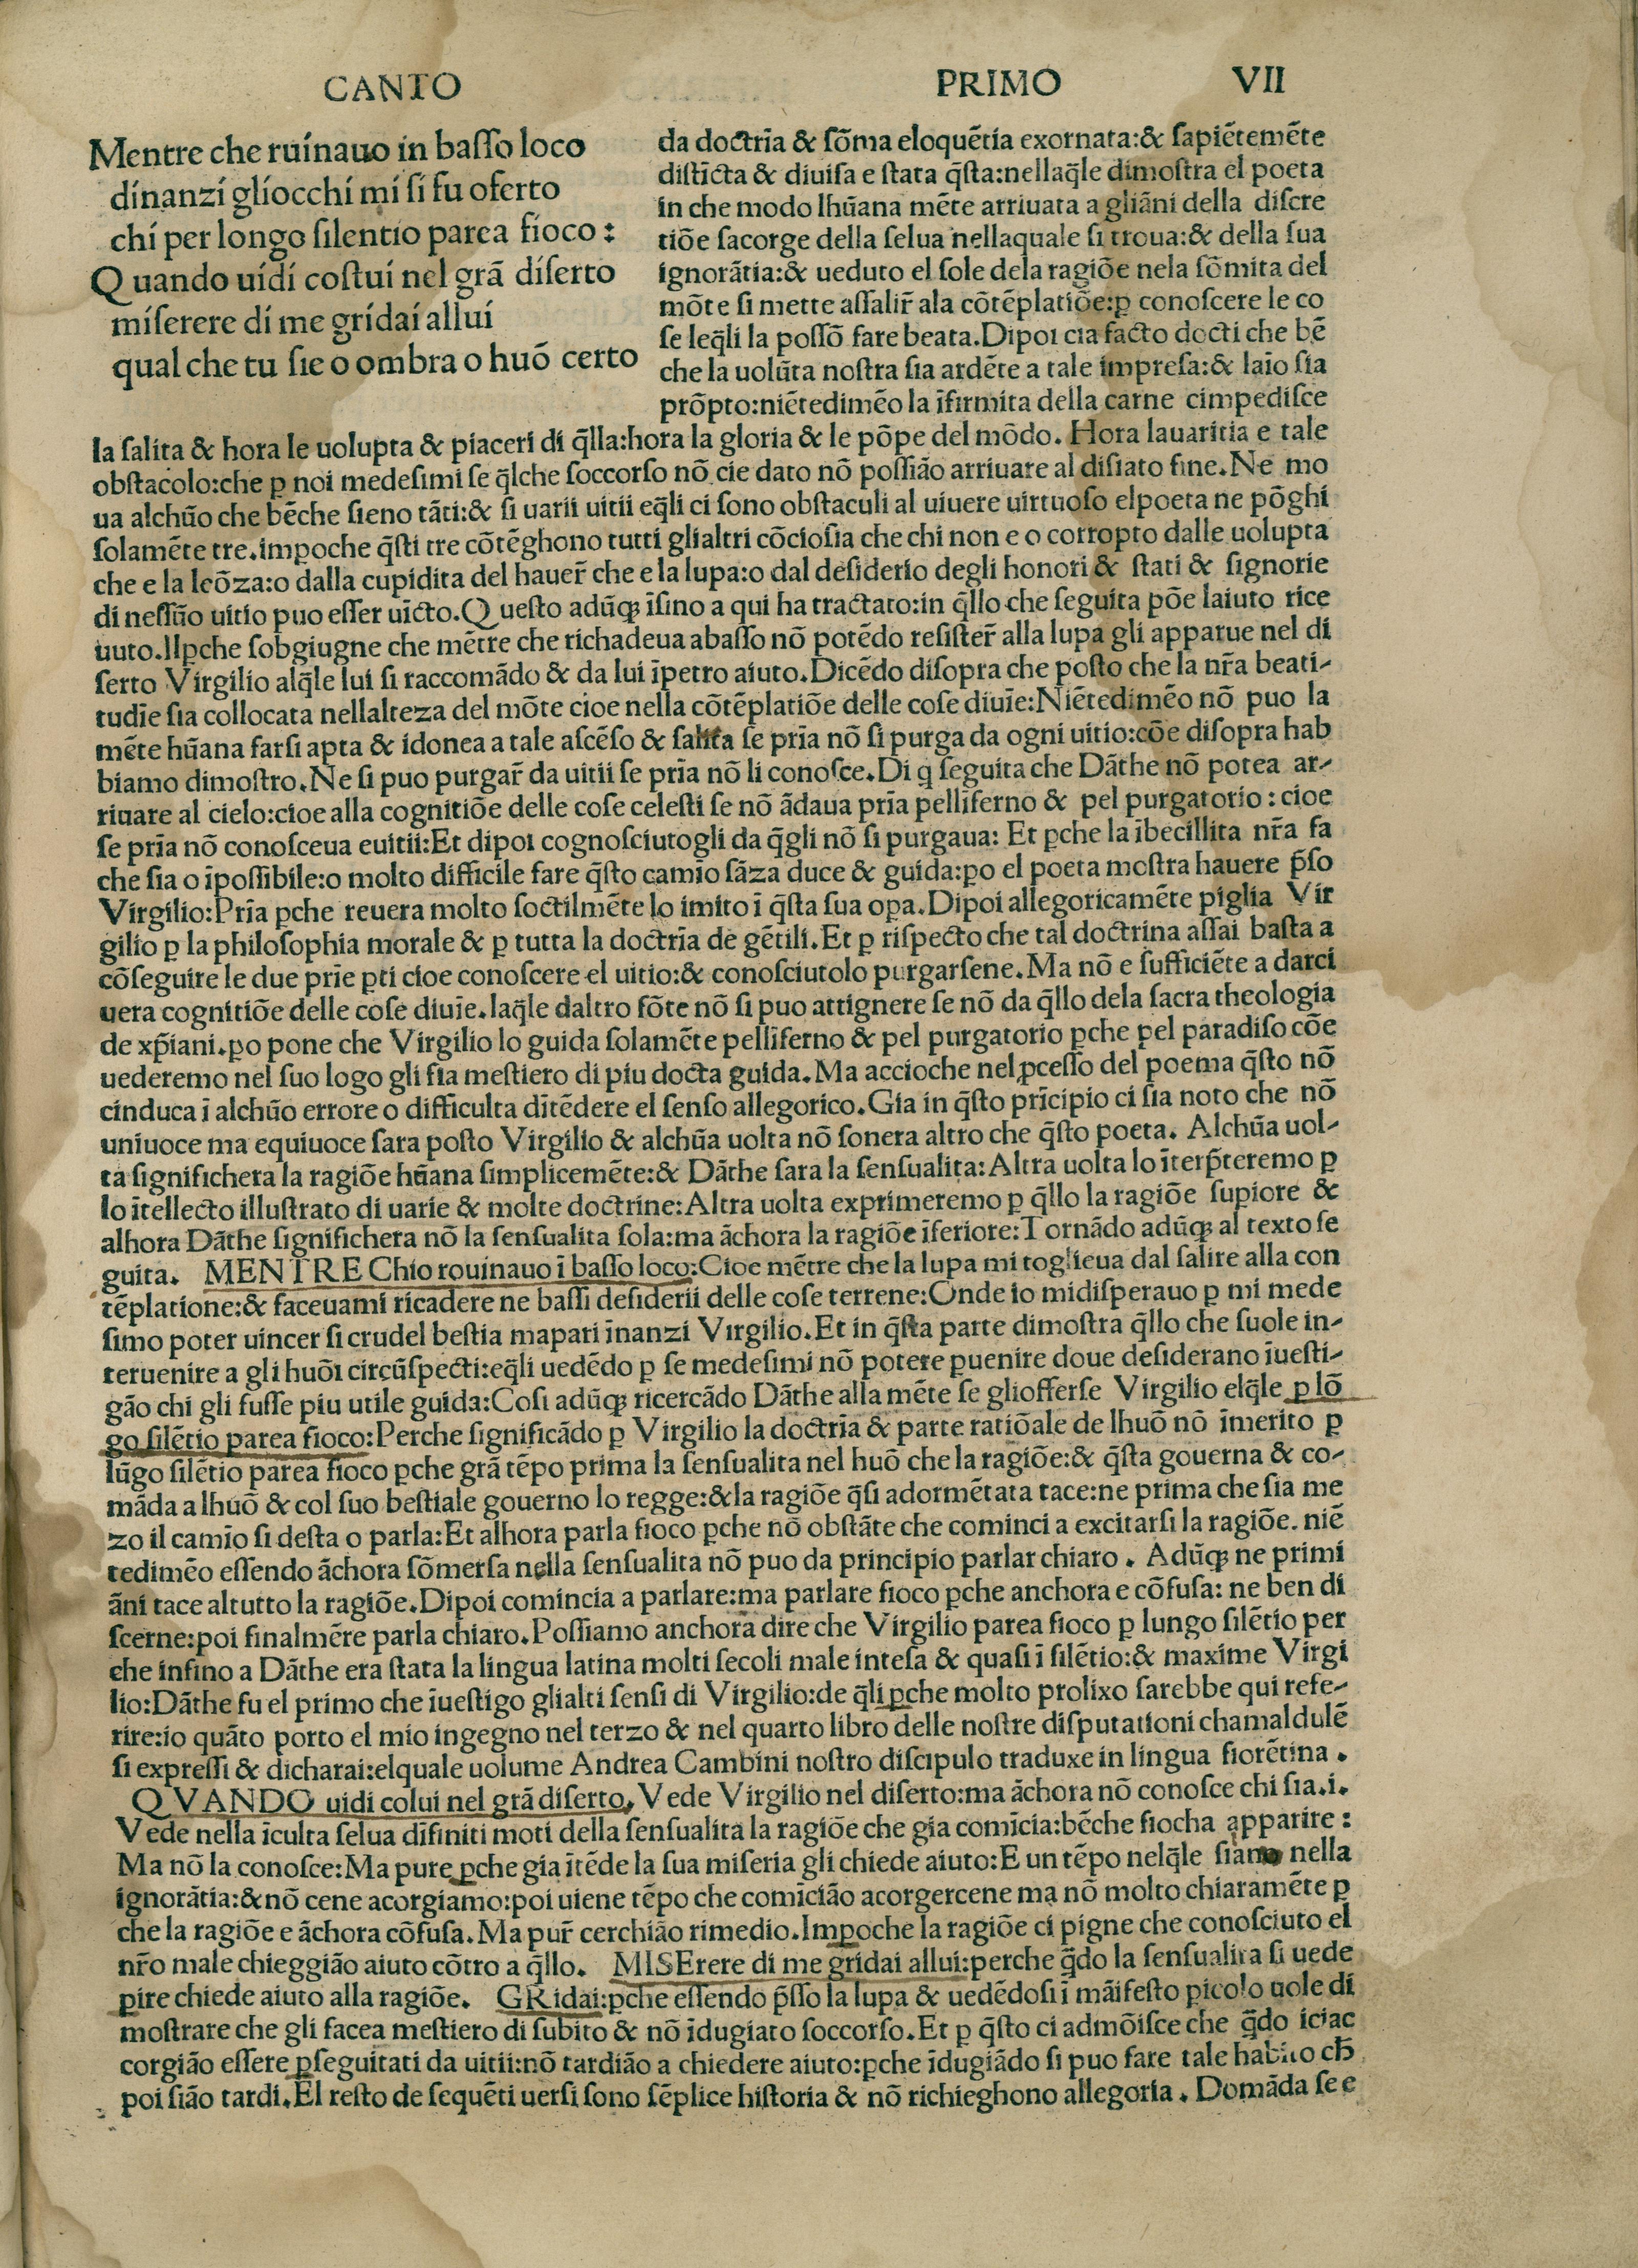 CANTO PRIMO VII
Mentre che ruinauo in baſſo loco
dinanzi gliocchi mi ſi fu oferto
chi per longo ſilentio parea fioco:
Quando uidi coſtui nel grã diſerto
miſerere di me gridai allui
qual che tu ſie o ombra o huõ certo
da doctrĩa & ſõma eloquẽtia exornata:& ſapiẽtemẽte
diſtĩcta & diuiſa e ſtata q̃ſta:nellaq̃le dimoſtra el poeta
in che modo lhũana mẽte arriuata a gliãni della diſcre
tiõe ſacorge della ſelua nellaquale ſi troua:& della ſua
ignorãtia:& ueduto el ſole dela ragiõe nela ſõmita del
mõte ſi mette aſſalir̃ ala cõtẽplatiõe:ꝑ conoſcere le co
ſe leq̃li la poſſõ fare beata.Dipoi cia facto docti che bẽ
che la uolũta noſtra ſia ardẽte a tale impreſa:& laĩo ſia
prõpto:niẽtedimẽo la ĩfirmita della carne cimpediſce
la ſalita & hora le uolupta & piaceri di q̃lla:hora la gloria & le põpe del mõdo. Hora lauaritia e tale
obſtacolo:che ꝑ noi medeſimi ſe q̃lche ſoccorſo nõ cie dato nõ poſſião arriuare al diſiato fine.Ne mo
ua alchũo che bẽche ſieno tãti:& ſi uarii uitii eq̃li ci ſono obſtaculi al uiuere uirtuoſo elpoeta ne põghi
ſolamẽte tre.impoche q̃ſti tre cõtẽghono tutti glialtri cõcioſia che chi non e o corropto dalle uolupta
che e la leõza:o dalla cupidita del hauer̃ che e la lupa:o dal deſiderio degli honori & ſtati & ſignorie
di neſſũo uitio puo eſſer uĩcto.Queſto adũqꝫ ĩſino a qui ha tractato:in q̃llo che ſeguita põe laiuto rice
uuto.Ilꝑche ſobgiugne che mẽtre che richadeua abaſſo nõ potẽdo reſiſter̃ alla lupa gli apparue nel di
ſerto Virgilio alq̃le lui ſi raccomãdo & da lui ĩpetro aiuto.Dicẽdo diſopra che poſto che la nr̃a beati-
tudĩe ſia collocata nellalteza del mõte cioe nella cõtẽplatiõe delle coſe diuĩe:Niẽtedimẽo nõ puo la
mẽte hũana farſi apta & idonea a tale aſcẽſo & ſalita ſe prĩa nõ ſi purga da ogni uitio:cõe diſopra hab
biamo dimoſtro.Ne ſi puo purgar̃ da uitii ſe prĩa nõ li conoſce.Di q ſeguita che Dãthe nõ potea ar-
riuare al cielo:cioe alla cognitiõe delle coſe celeſti ſe nõ ãdaua prĩa pellĩferno & pel purgatorio : cioe
ſe prĩa nõ conoſceua euitii:Et dipoi cognoſciutogli da q̃gli nõ ſi purgaua: Et ꝑche la ĩbecillita nr̃a fa
che ſia o ĩpoſſibile:o molto difficile fare q̃ſto camĩo ſãza duce & guida:ꝑo el poeta moſtra hauere p̃ſo
Virgilio:Prĩa ꝑche reuera molto ſoctilmẽte lo imito ĩ q̃ſta ſua oꝑa.Dipoi allegoricamẽte piglia Vir
gilio ꝑ la philoſophia morale & ꝑ tutta la doctrĩa de gẽtili.Et ꝑ riſpecto che tal doctrina aſſai baſta a
cõſeguire le due prĩe ꝑti cioe conoſcere el uitio:& conoſciutolo purgarſene.Ma nõ e ſufficiẽte a darci
uera cognitiõe delle coſe diuĩe.laq̃le daltro fõte nõ ſi puo attignere ſe nõ da q̃llo dela ſacra theologia
de xp̃iani.ꝑo pone che Virgilio lo guida ſolamẽte pellĩferno & pel purgatorio ꝑche pel paradiſo cõe
uederemo nel ſuo logo gli fia meſtiero di piu docta guida.Ma accioche nel ꝓceſſo del poema q̃ſto nõ
cinduca ĩ alchũo errore o difficulta dĩtẽdere el ſenſo allegorico.Gia in q̃ſto prĩcipio ci ſia noto che nõ
uniuoce ma equiuoce ſara poſto Virgilio & alchũa uolta nõ ſonera altro che q̃ſto poeta. Alchũa uol-
ta ſignifichera la ragiõe hũana ſimplicemẽte:& Dãthe ſara la ſenſualita:Altra uolta lo ĩterp̃teremo ꝑ
lo ĩtellecto illuſtrato di uarie & molte doctrine:Altra uolta exprimeremo ꝑ q̃llo la ragiõe ſuꝑiore &
alhora Dãthe ſignifichera nõ la ſenſualita ſola:ma ãchora la ragiõe ĩferiore:Tornãdo adũqꝫ al texto ſe
guita. MENTRE Chio rouinauo ĩ baſſo loco:Cioe mẽtre che la lupa mi toglieua dal ſalire alla con
tẽplatione:& faceuami ricadere ne baſſi deſiderii delle coſe terrene:Onde io midiſperauo ꝑ mi mede
ſimo poter uincer ſi crudel beſtia mapari ĩnanzi Virgilio.Et in q̃ſta parte dimoſtra q̃llo che ſuole in-
teruenire a gli huõi circũſpecti:eq̃li uedẽdo ꝑ ſe medeſimi nõ potere ꝑuenire doue deſiderano ĩueſti-
gão chi gli fuſſe piu utile guida:Coſi adũqꝫ ricercãdo Dãthe alla mẽte ſe gliofferſe Virgilio elq̃le ꝑ lõ
go ſilẽtio parea fioco:Perche ſignificãdo ꝑ Virgilio la doctrĩa & parte ratiõale de lhuõ nõ ĩmerito ꝑ
lũgo ſilẽtio parea fioco ꝑche grã tẽpo prima la ſenſualita nel huõ che la ragiõe:& q̃ſta gouerna & co-
mãda a lhuõ & col ſuo beſtiale gouerno lo regge:& la ragiõe q̃ſi adormẽtata tace:ne prima che ſia me
zo il camĩo ſi deſta o parla:Et alhora parla fioco ꝑche nõ obſtãte che cominci a excitarſi la ragiõe. niẽ
tedimẽo eſſendo ãchora ſõmerſa nella ſenſualita nõ puo da principio parlar chiaro . Adũqꝫ ne primi
ãni tace altutto la ragiõe.Dipoi comincia a parlare:ma parlare fioco ꝑche anchora e cõfuſa: ne ben di
ſcerne:poi finalmẽre parla chiaro.Poſſiamo anchora dire che Virgilio parea fioco ꝑ lungo ſilẽtio per
che infino a Dãthe era ſtata la lingua latina molti ſecoli male inteſa & quaſi ĩ ſilẽtio:& maxime Virgi
lio:Dãthe fu el primo che ĩueſtigo glialti ſenſi di Virgilio:de q̃li ꝑche molto prolixo ſarebbe qui refe-
rire:io quãto porto el mio ingegno nel terzo & nel quarto libro delle noſtre diſputationi chamaldulẽ
ſi expreſſi & dicharai:elquale uolume Andrea Cambini noſtro diſcipulo traduxe in lingua fiorẽtina .
QVANDO uidi colui nel grã diſerto. Vede Virgilio nel diſerto:ma ãchora nõ conoſce chi ſia.i.
Vede nella ĩculta ſelua dĩfiniti moti della ſenſualita la ragiõe che gia comĩcia:bẽche fiocha apparire :
Ma nõ la conoſce:Ma pure ꝑche gia ĩtẽde la ſua miſeria gli chiede aiuto:E un tẽpo nelq̃le ſiamo nella
ignorãtia:& nõ cene acorgiamo:poi uiene tẽpo che comĩcião acorgercene ma nõ molto chiaramẽte ꝑ
che la ragiõe e ãchora cõfuſa.Ma pur̃ cerchião rimedio.Imꝑoche la ragiõe ci pigne che conoſciuto el
nr̃o male chieggião aiuto cõtro a q̃llo. MISErere di me gridai allui:perche q̃do la ſenſualita ſi uede
ꝑire chiede aiuto alla ragiõe. GRidai:ꝑche eſſendo p̃ſſo la lupa & uedẽdoſi ĩ mãifeſto picolo uole di
moſtrare che gli facea meſtiero di ſubito & nõ ĩdugiato ſoccorſo.Et ꝑ q̃ſto ci admõiſce che q̃do iciac
corgião eſſere ꝑſeguitati da uitii:nõ tardião a chiedere aiuto:ꝑche ĩdugiãdo ſi puo fare tale habito cħ
poi ſião tardi.El reſto de ſequẽti uerſi ſono ſẽplice hiſtoria & nõ richieghono allegoria . Domãda ſe e